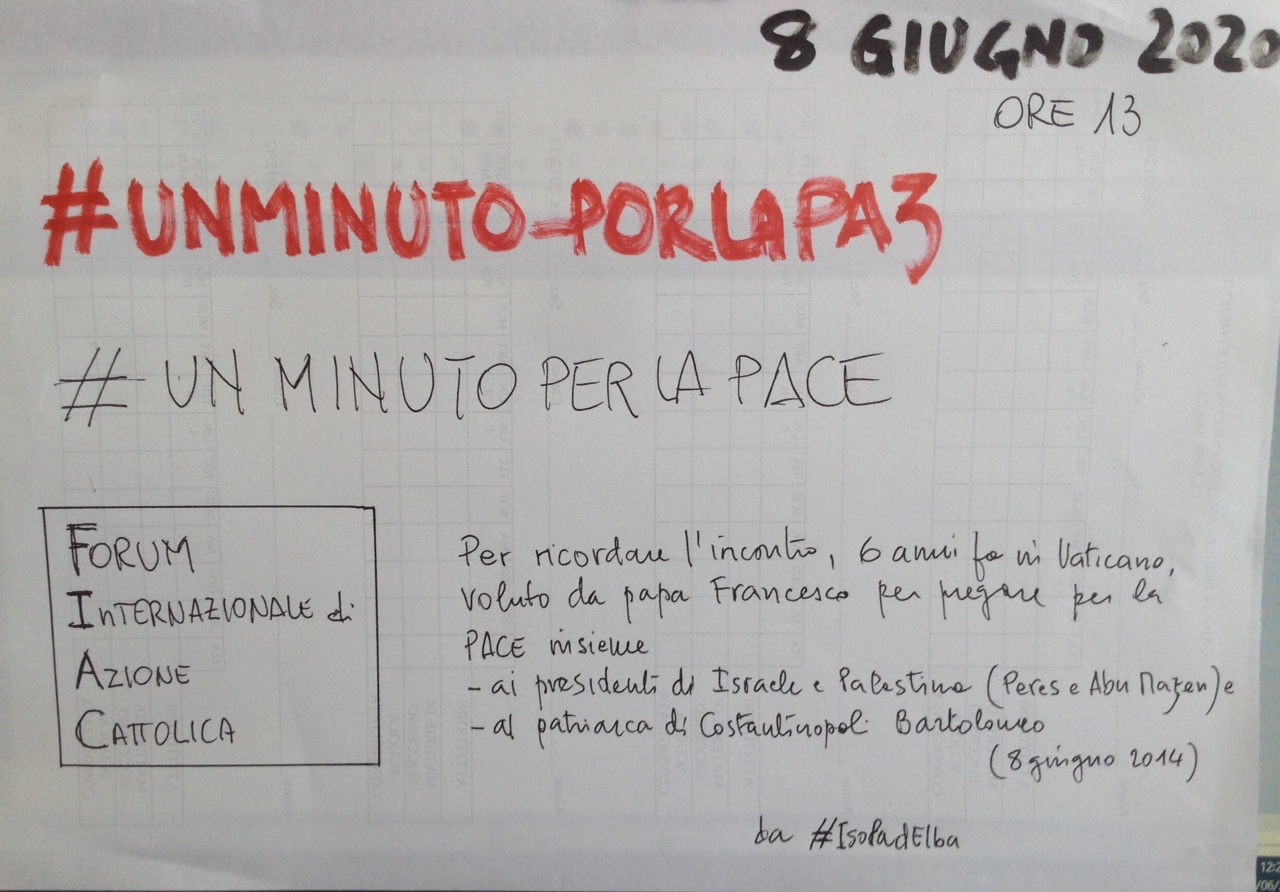 8 GIUGNO 2020
ORE 13
#UNMINUTO-PORLAPAZ
# UN MINUTO PER LA PACE
FORUM
INTERNAZIONALE di
AZIONE
CATTOLICA
Per ricordare l'incontro, 6 anni fa in Vaticano,
voluto da papa Francesco per pregare per la
PACE insieme
- ai presidenti di Israele e Palestina (Peres e Abu Mazen) e
- al patriarca di Costantinopoli Bartolomeo
(8 giugno 2014)
da #IsoladElba